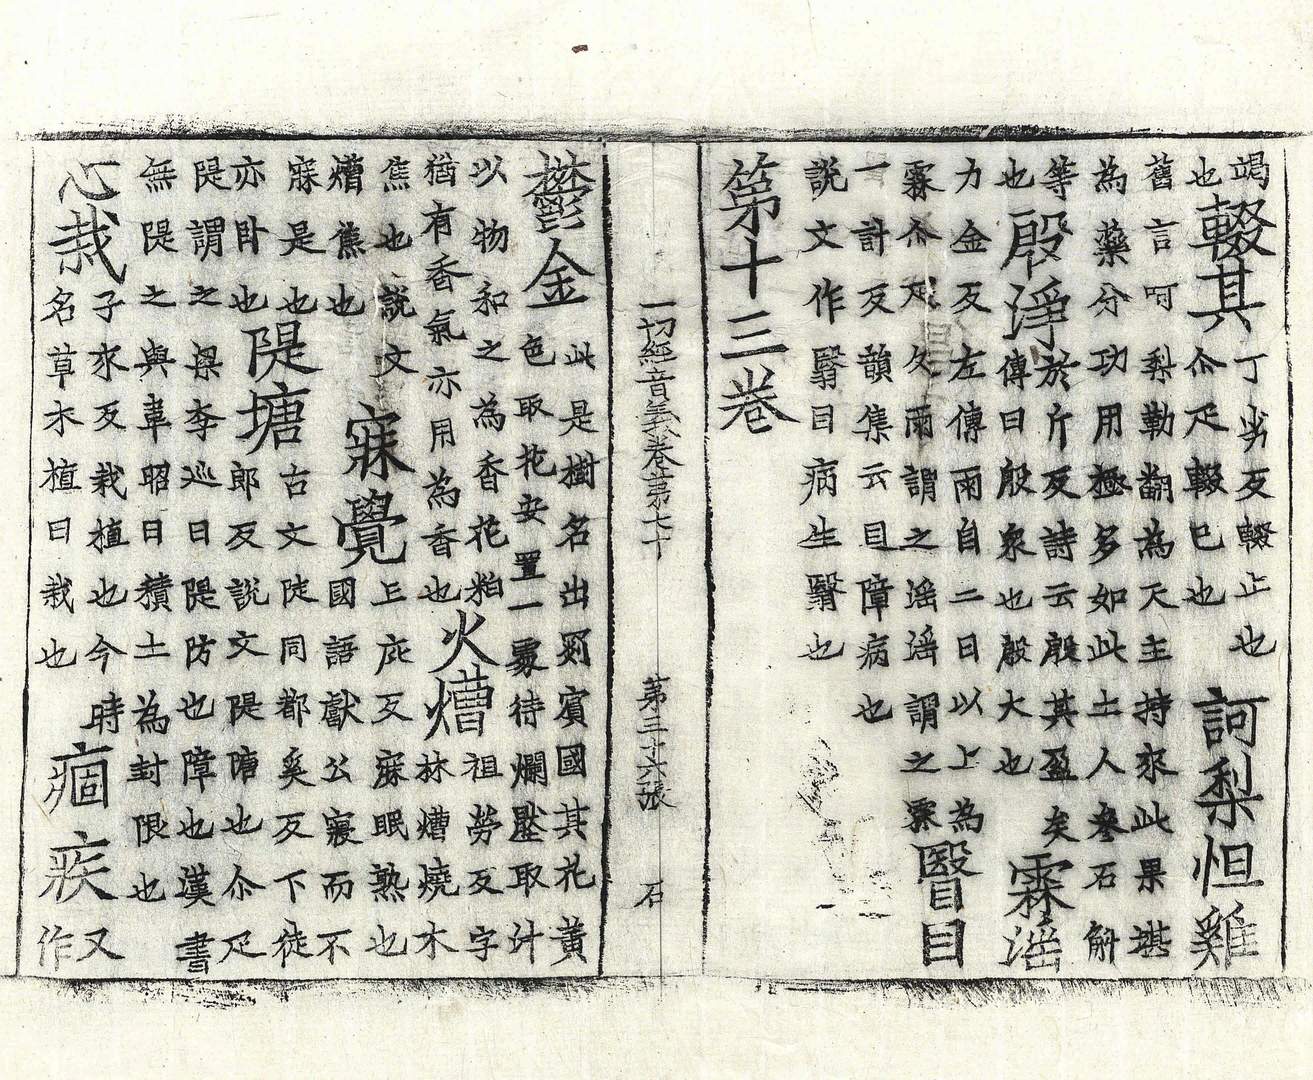 竭也輟其丁劣反輟止也尒疋輟已也訶梨怛雞
舊言呵梨勒翻為天主持來此果堪為藥分功用極多如此土人參石斛
等也殷淨於斤反詩云殷其盈矣傳曰殷衆也殷大也霖滛
力金反左傳雨自二日以上為霖尒疋久雨謂之滛滛謂之霖瞖目
一計反韻集云目障病也說文作瞖目病生瞖也
第十三卷
一切經音義卷第七十 第三十六張 石
鬱金此是樹名出罽賓國其花黃色取花安置一處待爛壓取汁
以物和之為香花粕猶有香氣亦用為香也火㷮祖勞反字林㷮燒木
焦也說文㷮焦也寐覺亡庇反寐眠熟也國語獻公寢而不
寐是也亦卧也隄塘古文陡同都奚反下徒郎反說文隄塘也尒疋
隄謂之梁李巡曰隄防也障也漢書無隄之與韋昭曰積土為封限也
心栽子來反栽植也今時名草木植曰栽也痼疾又作